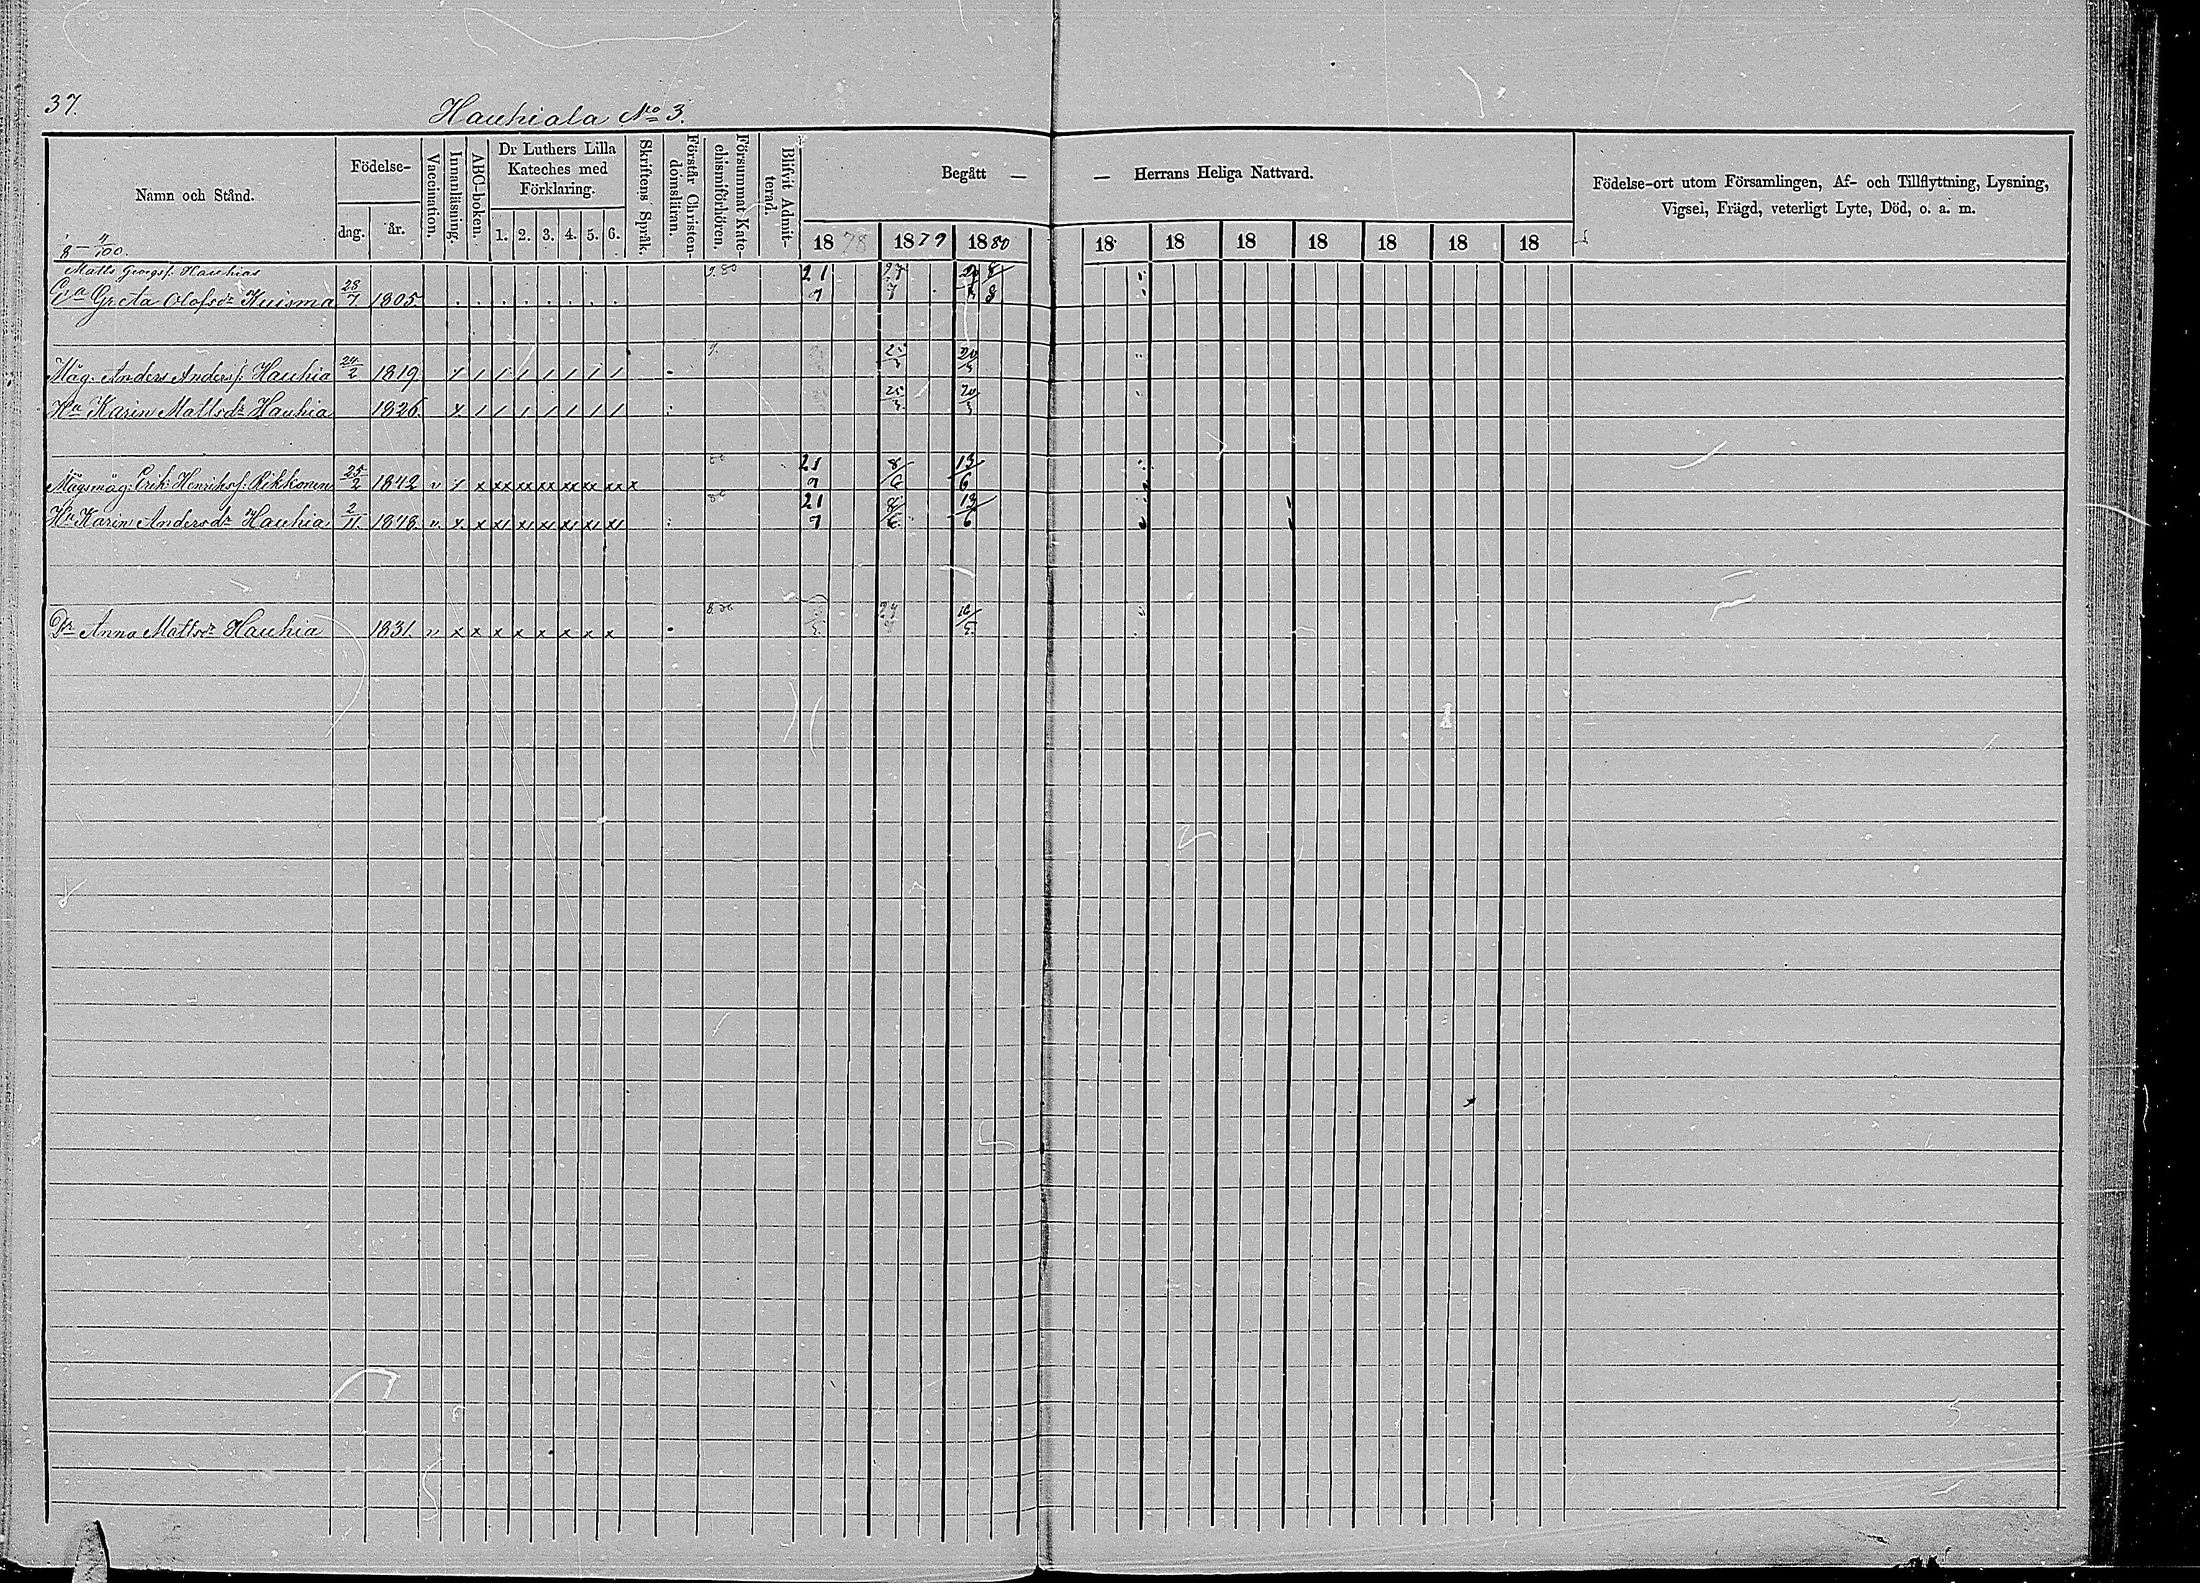 37.
Hauhiala No 3.
Namn och Stånd.
Födelse-
dag.
år.
Vaccination.
Innanläsning.
ABC-boken.
Dr Luthers Lilla
Kateches med
Förklaring.
1. 2. 3. 4. 5. 6.
Skriftens Språk.
Förstår Christen-
domsläran.
Försummat Kate-
chismiförhören.
Blifvit Admit-
terad.
Begått — — Herrans Heliga Nattvard.
1878 1879 1880 18 18 18 18 18 18 18
Födelse-ort utom Församlingen, Af- och Tillflyttning, Lysning,
Vigsel, Frägd, veterligt Lyte, Död, o. a. m.
Matts Georgsf. Hauhias
Ea Greta Olofsdr Kuisma 28/7 1805 21/7 8/8
Måg. Anders Andersf. Hauhia 24/2 1819 x / / / / / / / 25/3 20/3
Hu Karin Mattsdr Hauhia 1826 x / / / / / / / 25/3 20/3
Mågsmåg: Erik Henriksf. Rikkonen 25/2 1842 v x x xx xx xx xx xx xx x 21/7 8/6 13/6
Hu Karin Andersdr Hauhia 2/11 1848 v. x x 21/7 8/6 13/6
Dr Anna Mattsdr Hauhia 1831. v x x x x x x x x